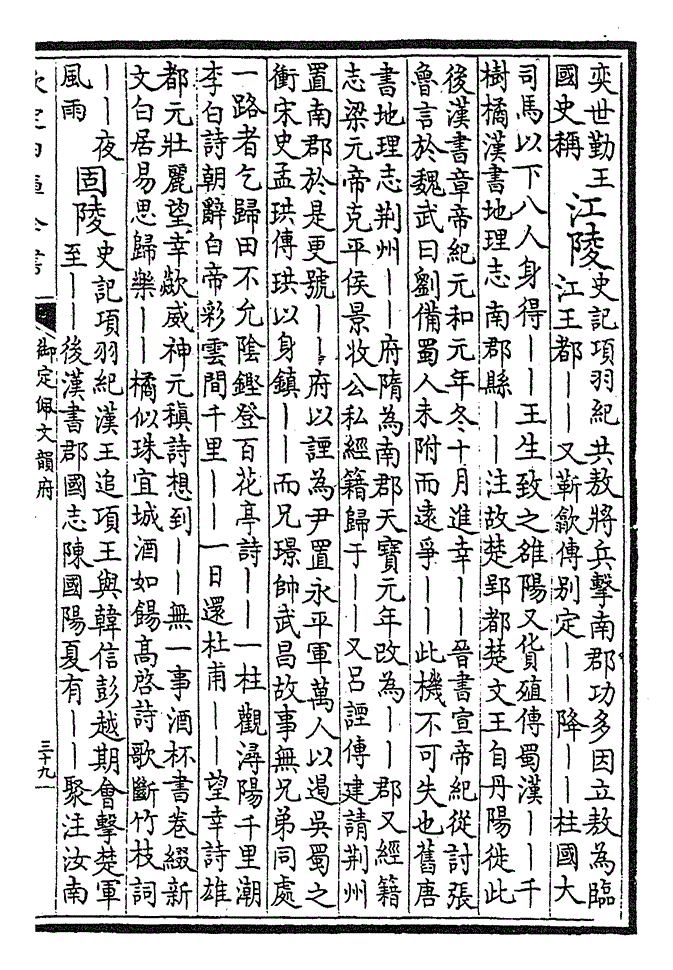 奕世勤王
國史稱
江陵
史記項羽紀共敖將兵擊南郡功多因立敖為臨
江王都——又靳歙傳別定——降——柱國大
司馬以下八人身得——王生致之雒陽又貨殖傳蜀漢——千
樹橘漢書地理志南郡縣——注故楚郢都楚文王自丹陽徙此
後漢書章帝紀元和元年冬十月進幸——晉書宣帝紀從討張
魯言於魏武曰劉備蜀人未附而遠爭——此機不可失也舊唐
書地理志荆州——府隋為南郡天寶元年改為——郡又經籍
志梁元帝克平侯景收公私經籍歸于——又呂諲傳建請荆州
置南郡於是更號——府以諲為尹置永平軍萬人以遏吳蜀之
衝宋史孟珙傳珙以身鎮——而兄璟帥武昌故事無兄弟同處
一路者乞歸田不允陰鏗登百花亭詩——一柱觀潯陽千里潮
李白詩朝辭白帝彩雲間千里——一日還杜甫——望幸詩雄
都元壯麗望幸歘威神元稹詩想到——無一事酒杯書卷綴新
文白居易思歸樂——橘似珠宜城酒如餳高啓詩歌斷竹枝詞
——夜
風雨
固陵
史記項羽紀漢王追項王與韓信彭越期會擊楚軍
至——後漢書郡國志陳國陽夏有——聚注汝南
欽定四庫全書
御定佩文韻府
三十九